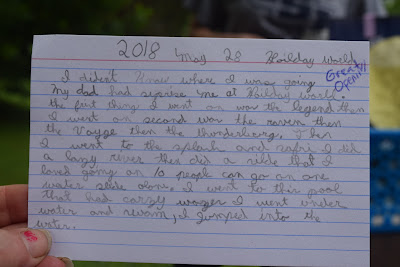 2018 May 28 Holiday World
Great
Opening
I dident know where I was going
My dad had suprise me at Holiday World.
the first thing I went on was the legend then
I went on second was the raven then
the Voyge then the thunderberg. Then
I went to the splash and safri I did
a lazy river then did a ride that I
loved going on 10 people can go on one
water slide alon. I went to this pool
that had carzy waves I went under
water and swam, I jumped into the
water.